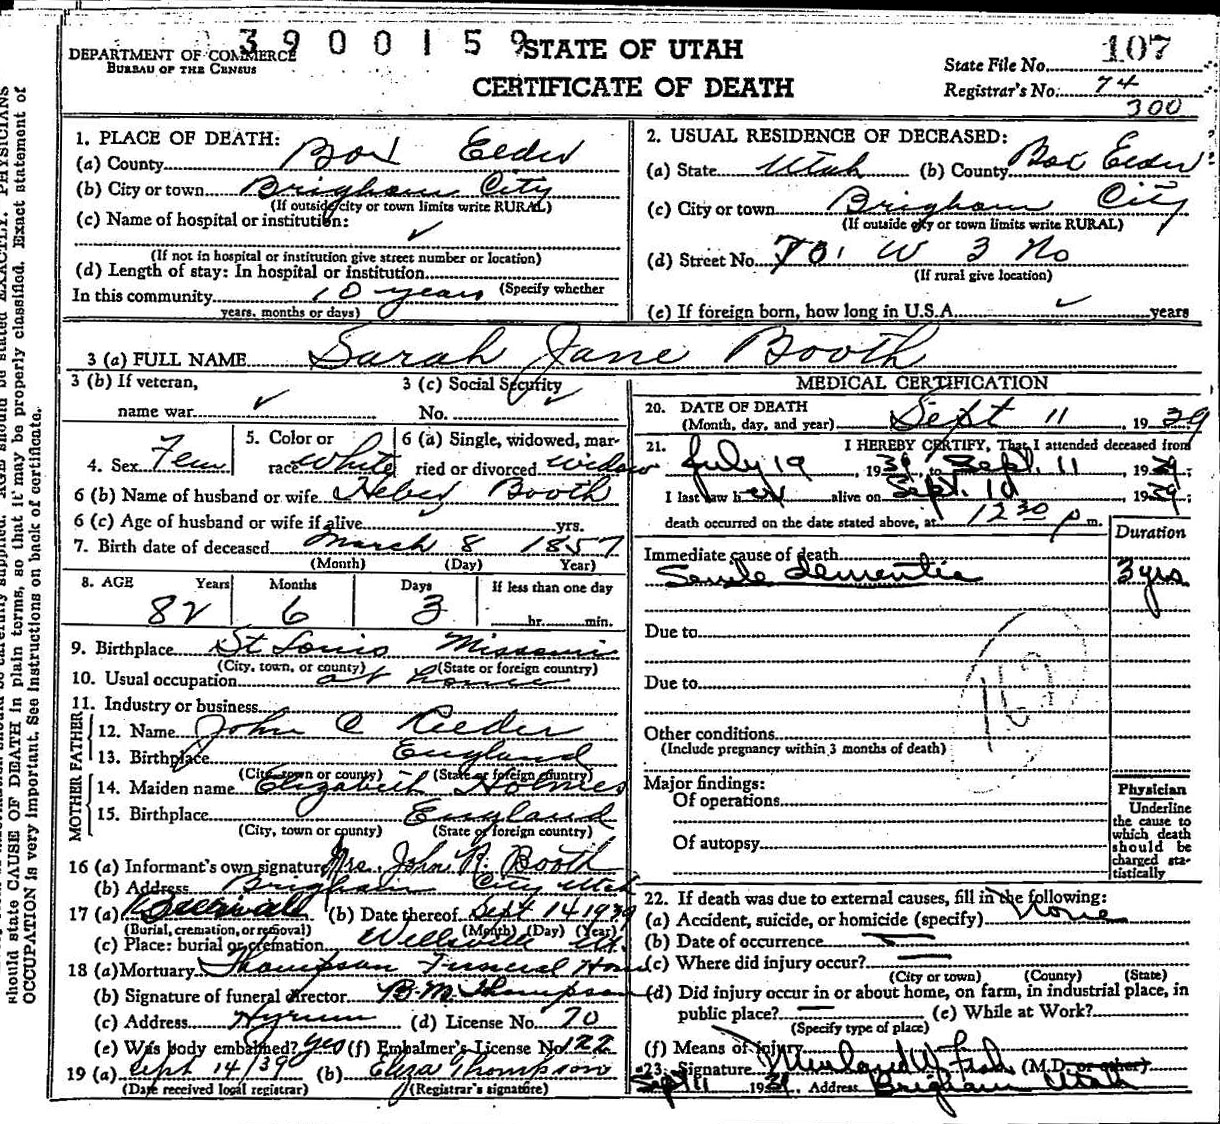 3900159
DEPARTMENT OF COMMERCE
BUREAU OF THE CENSUS
STATE OF UTAH
CERTIFICATE OF DEATH
107
State File No.
Registrar's No. 74
300
PHYSICIANS
should state CAUSE OF DEATH in plain terms, so that it may be properly classified. Exact statement of
OCCUPATION is very important. See instructions on back of certificate.
1. PLACE OF DEATH:
(a) County Box Elder
(b) City or town Brigham City
(If outside city or town limits write RURAL)
(c) Name of hospital or institution:
✓
(If not in hospital or institution give street number or location)
(d) Length of stay: In hospital or institution
(Specify whether
In this community 10 years
years, months or days)
2. USUAL RESIDENCE OF DECEASED:
(a) State Utah (b) County Box Elder
(c) City or town Brigham City
(If outside city or town limits write RURAL)
(d) Street No. 701 W 3 No
(If rural give location)
(e) If foreign born, how long in U.S.A. ✓ years
3 (a) FULL NAME Sarah Jane Booth
3 (b) If veteran,
name war ✓
3 (c) Social Security
No. ✓
4. Sex Fem
5. Color or
race White
6 (a) Single, widowed, mar-
ried or divorced widow
6 (b) Name of husband or wife Heber Booth
6 (c) Age of husband or wife if alive yrs.
7. Birth date of deceased March 8 1857
(Month) (Day) Year)
8. AGE Years Months Days If less than one day
82 6 3 hr. min.
9. Birthplace St Louis Missouri
(City, town, or county) (State or foreign country)
10. Usual occupation at home
11. Industry or business
FATHER
12. Name John C Reeder
13. Birthplace England
(City, town or county) (State or foreign country)
MOTHER
14. Maiden name Elizabeth Holmes
15. Birthplace England
(City, town or county) (State or foreign country)
16 (a) Informant's own signature Mrs. John R. Booth
(b) Address Brigham City Utah
17 (a) Burial (b) Date thereof Sept 14 1939
(Burial, cremation, or removal) (Month) (Day) (Year)
(c) Place: burial or cremation Wellsville Ut.
18 (a) Mortuary Thompson Funeral Home
(b) Signature of funeral director B.M. Thompson
(c) Address Hyrum (d) License No. 70
(e) Was body embalmed? yes (f) Embalmer's License No. 122
19 (a) Sept 14/39 (b) Eliza Thompson
(Date received local registrar) (Registrar's signature)
MEDICAL CERTIFICATION
20. DATE OF DEATH
(Month, day, and year) Sept 11, 1939
21. I HEREBY CERTIFY, That I attended deceased from
July 19, 1939, to Sept. 11, 1939;
I last saw her alive on Sept. 10, 1939;
death occurred on the date stated above, at 12 30 p m.
Duration
Immediate cause of death
Senile dementia 3 yrs
Due to
Due to
162
Other conditions
(Include pregnancy within 3 months of death)
Major findings:
Of operations
Of autopsy
Physician
Underline
the cause to
which death
should be
charged sta-
tistically
22. If death was due to external causes, fill in the following:
(a) Accident, suicide, or homicide (specify) None
(b) Date of occurrence
(c) Where did injury occur?
(City or town) (County) (State)
(d) Did injury occur in or about home, on farm, in industrial place, in
public place? (e) While at Work?
(Specify type of place)
(f) Means of injury
23. Signature (M.D. or other)
Sept 11 1939. Address Brigham Utah